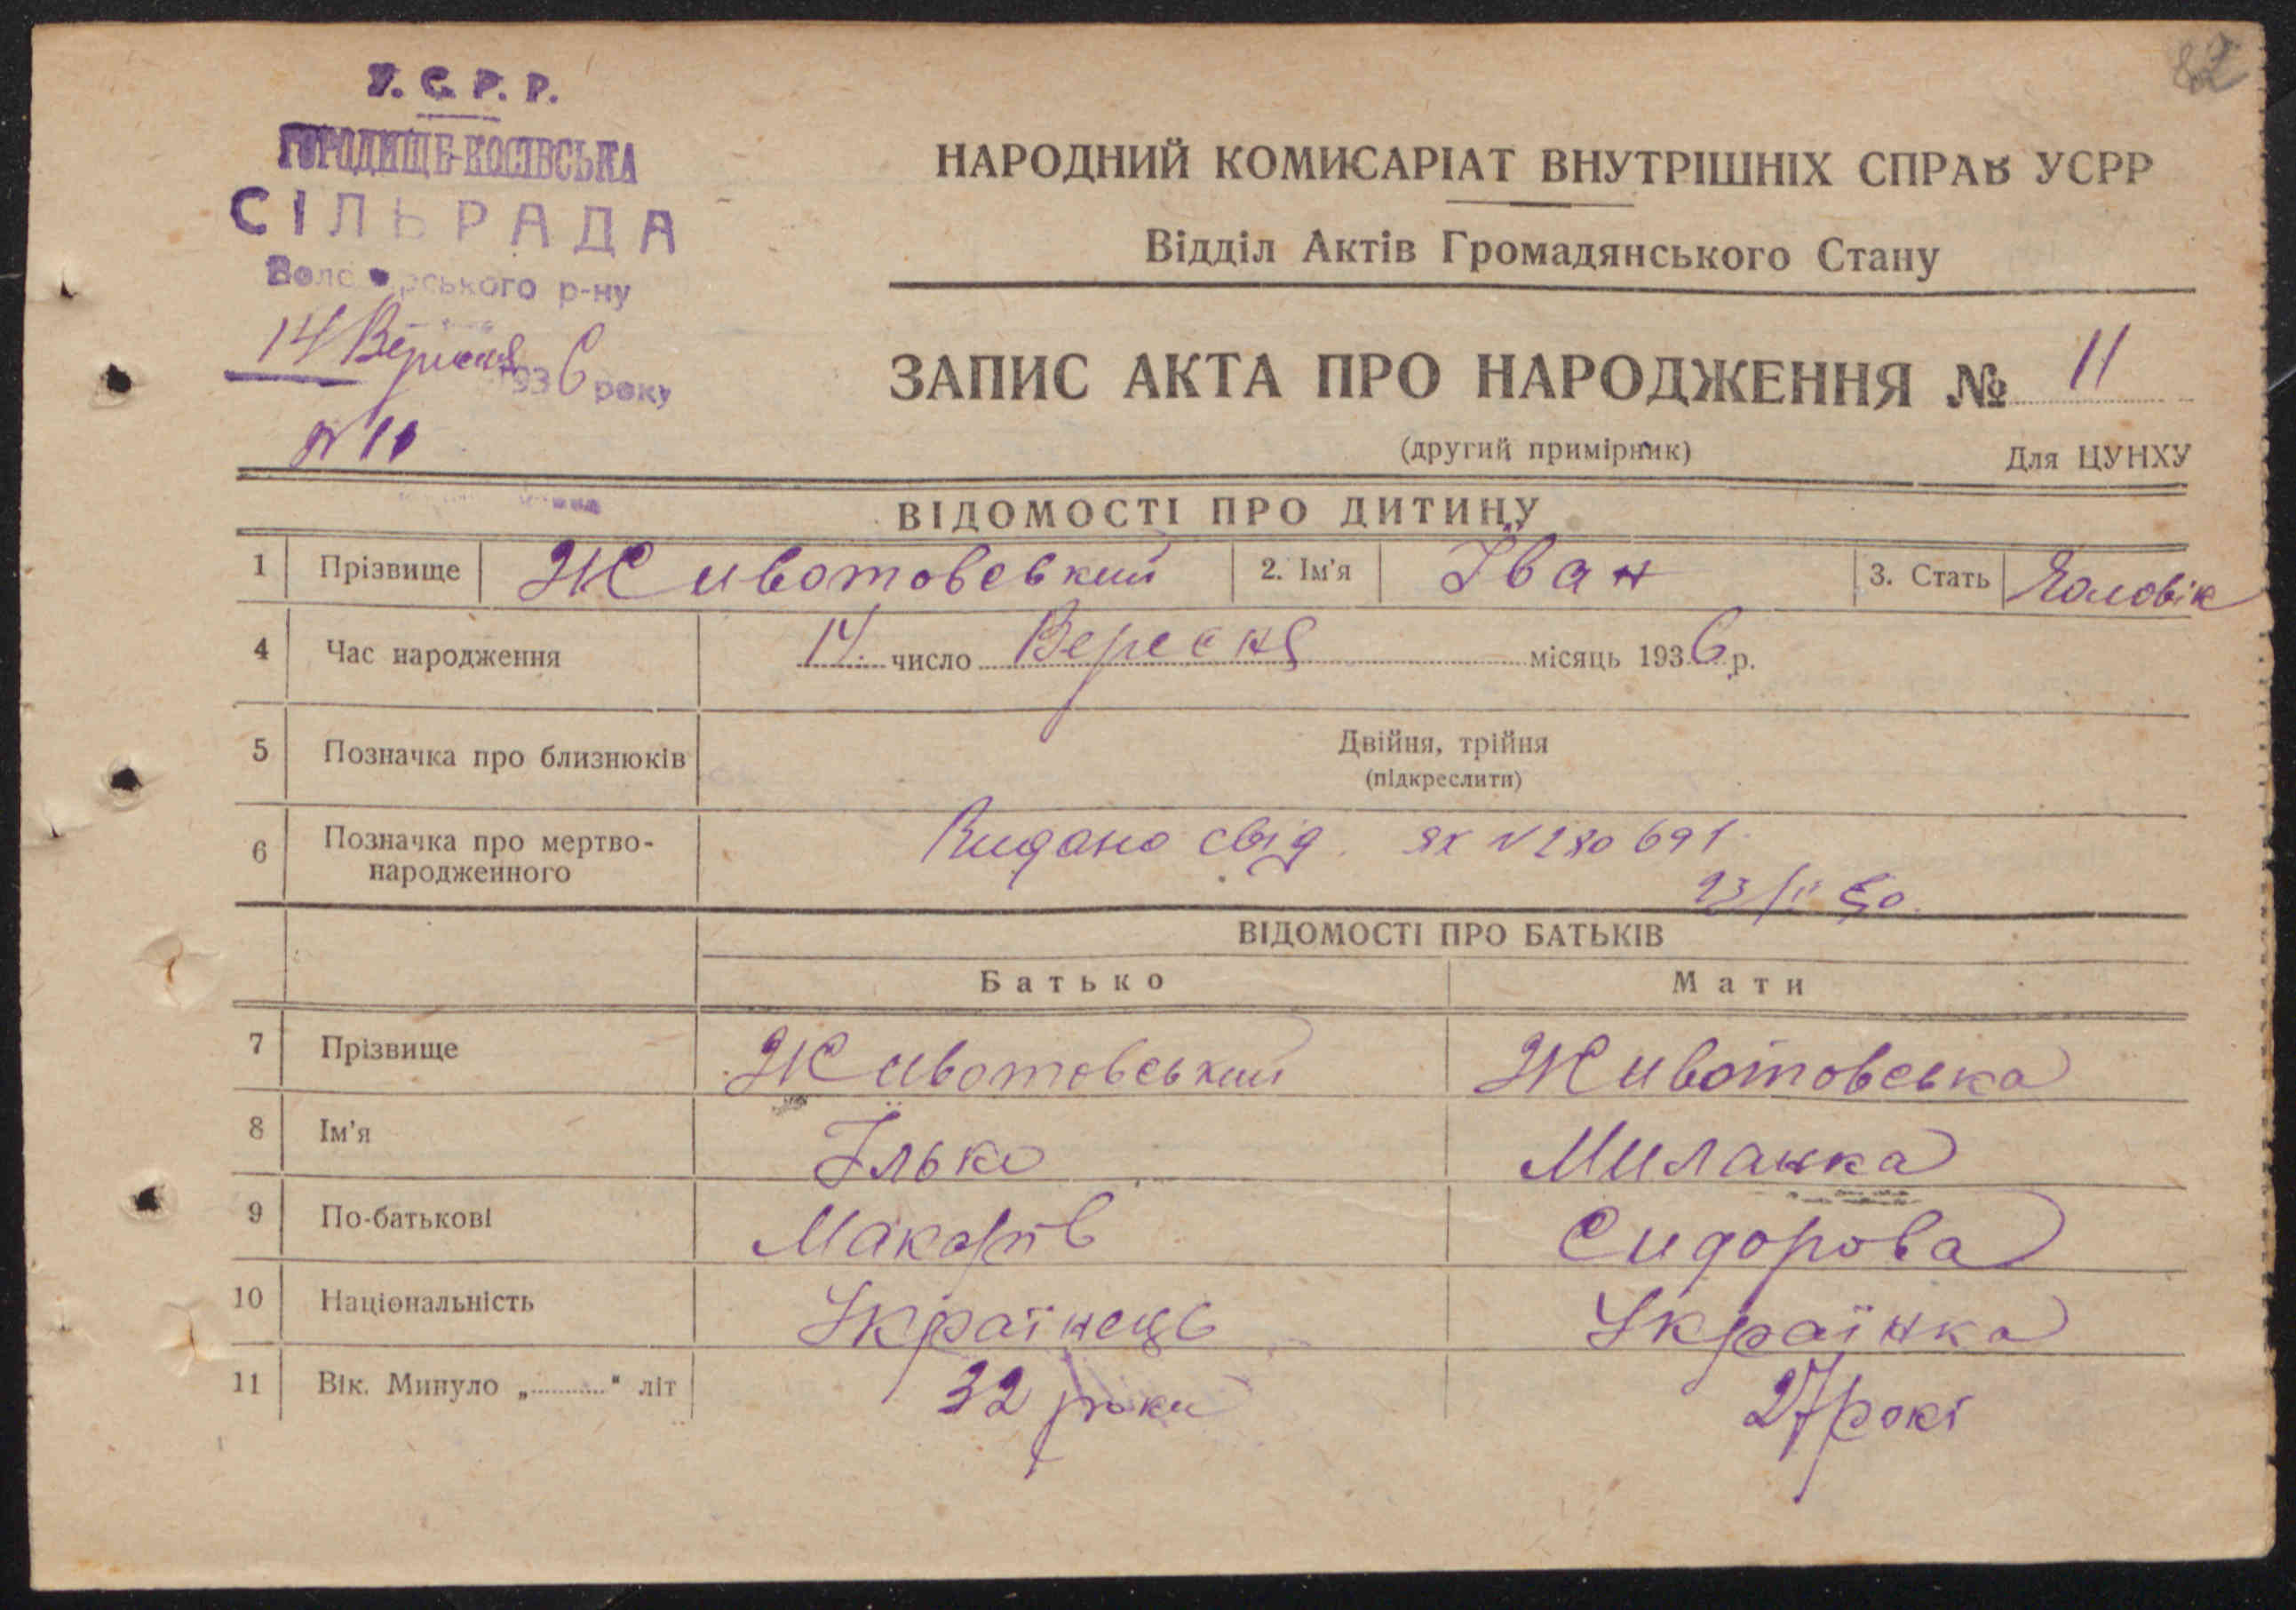 82
У.С.Р.Р.
ГОРОДИЩЕ-КОСІВСЬКА
СІЛЬРАДА
р-ну
14 Вересня 1936 року
№ 11
НАРОДНИЙ КОМИСАРІАТ ВНУТРІШНІХ СПРАВ УСРР
Відділ Актів Громадянського Стану
ЗАПИС АКТА ПРО НАРОДЖЕННЯ № 11
(другий примірник) Для ЦУНХУ
ВІДОМОСТІ ПРО ДИТИНУ
1 Прізвище Животовський 2. Ім'я Їван 3. Стать Чоловік
4 Час народження 14. число Вересня місяць 1936 р.
5 Позначка про близнюків Двійня, трійня
(підкреслити)
6 Позначка про мертво-
народженного
Видано свід. ЯХ № 280691
23/ 50.
ВІДОМОСТІ ПРО БАТЬКІВ
Батько Мати
7 Прізвище Животовський Животовська
8 Ім'я Їлько Миланка
9 По-батькові Макарів Сидорова
10 Національність Українець Українка
11 Вік. Минуло „..........“ літ 32 роки 27 рокі